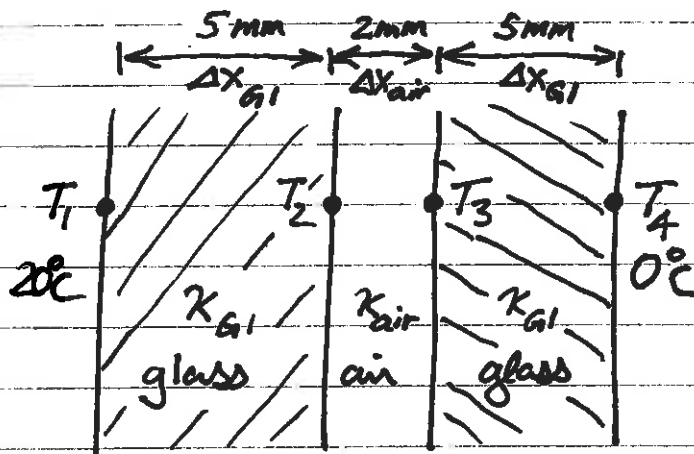 5mm 2mm 5mm
ΔX_Gl ΔX_air ΔX_Gl
T_1 T_2' T_3 T_4
20°C 0°C
K_Gl K_air K_Gl
glass air glass